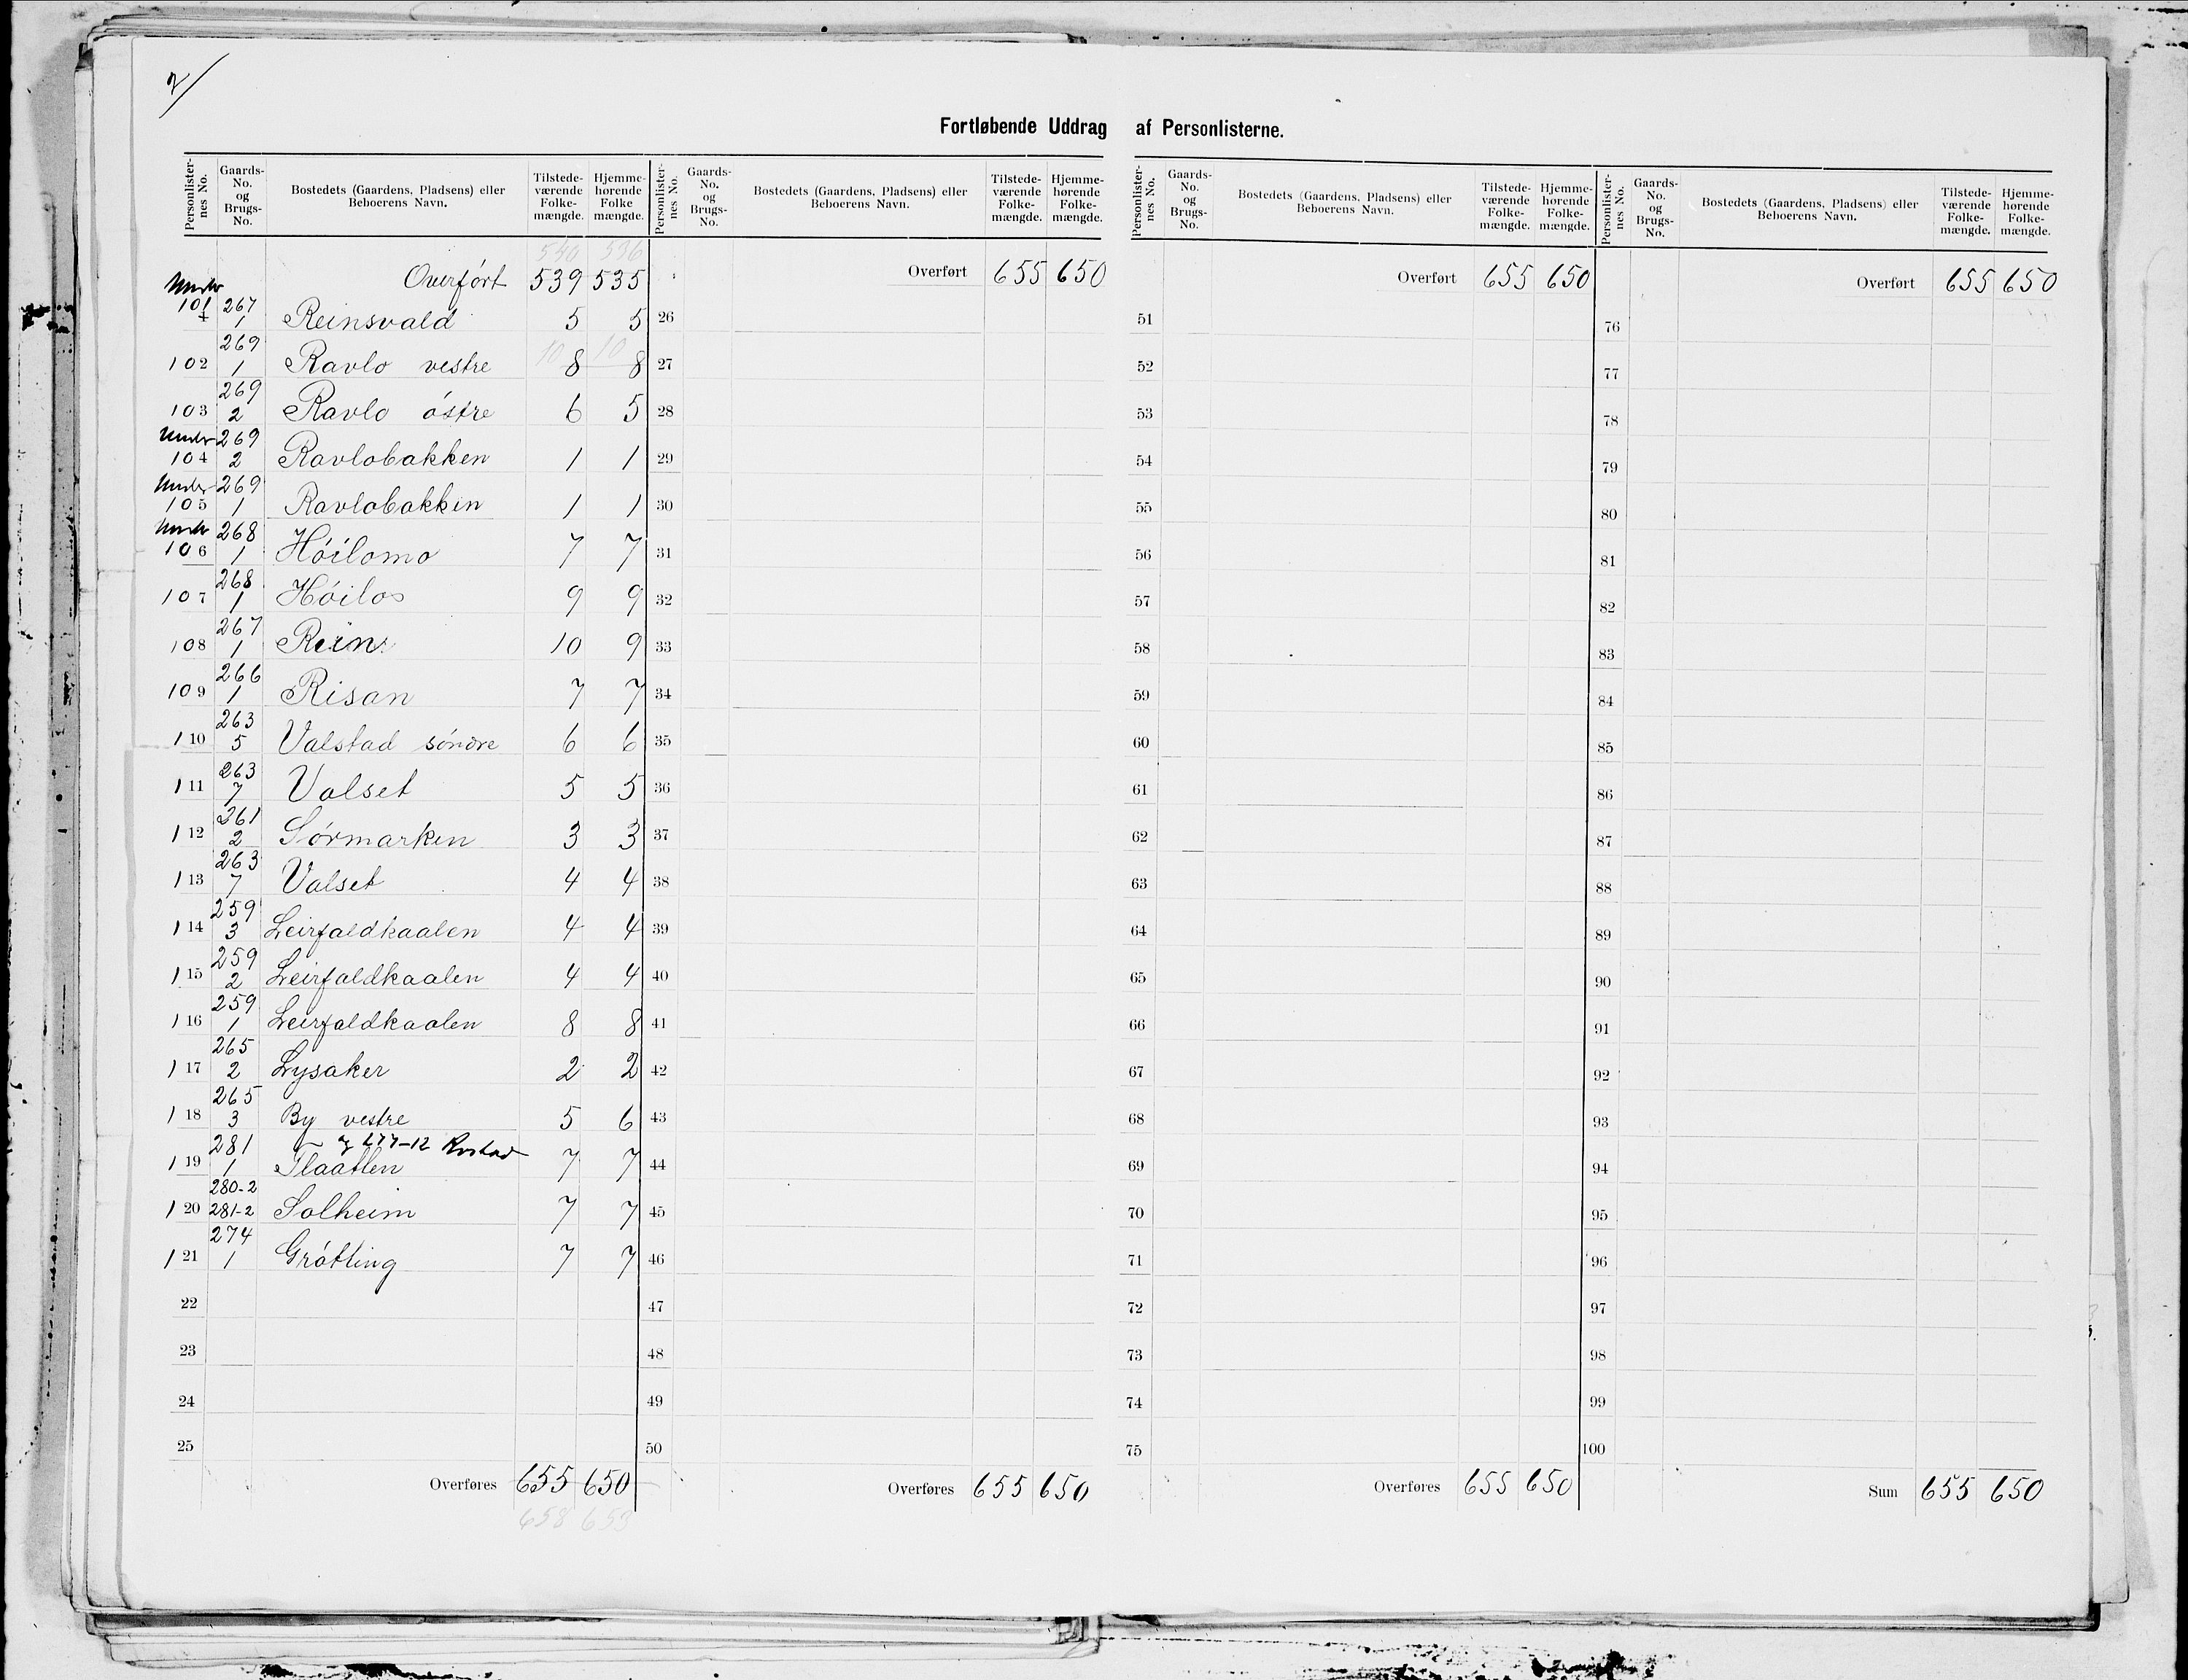 2/
Fortløbende Uddrag af Personlisterne.
Personlister-nes No. Gaards-No. og Brugs-No. Bostedets (Gaardens, Pladsens) eller Beboerens Navn. Tilstede-værende Folke-mængde. Hjemme-hørende Folke mængde.
540 536
Overført 539 535
Under 101 267 1 Reinsvald 5 5
102 269 1 Ravlo vestre 10 8 10 8
103 269 2 Ravlo østre 6 5
Under 104 269 2 Ravlobakken 1 1
Under 105 269 1 Ravlobakken 1 1
Under 106 268 1 Høilomo 7 7
107 268 1 Høilos 9 9
108 267 1 Rein 10 9
109 266 1 Risan 7 7
110 263 5 Valstad søndre 6 6
111 263 7 Valset 5 5
112 261 2 Sørmarken 3 3
113 263 7 Valset 4 4
114 259 3 Leirfaldkaalen 4 4
115 259 2 Leirfaldkaalen 4 4
116 259 1 Leirfaldkaalen 8 8
117 265 2 Lysaker 2 2
118 265 3 By vestre 5 6
119 281 1 Flaatten 7 7
120 280-2 281-2 Solheim 7 7
121 274 1 Grøtting 7 7
22
23
24
25
Overføres 655 650
658 653
Personlister-nes No. Gaards-No. og Brugs-No. Bostedets (Gaardens, Pladsens) eller Beboerens Navn. Tilstede-værende Folke-mængde. Hjemme-hørende Folke-mængde.
Overført 655 650
26
27
28
29
30
31
32
33
34
35
36
37
38
39
40
41
42
43
44
45
46
47
48
49
50
Overføres 655 650
Personlister-nes No. Gaards-No. og Brugs-No. Bostedets (Gaardens, Pladsens) eller Beboerens Navn. Tilstede-værende Folke-mængde. Hjemme-hørende Folke-mængde.
Overført 655 650
51
52
53
54
55
56
57
58
59
60
61
62
63
64
65
66
67
68
69
70
71
72
73
74
75
Overføres 655 650
Personlister-nes No. Gaards-No. og Brugs-No. Bostedets (Gaardens, Pladsens) eller Beboerens Navn. Tilstede-værende Folke-mængde. Hjemme-hørende Folke-mængde.
Overført 655 650
76
77
78
79
80
81
82
83
84
85
86
87
88
89
90
91
92
93
94
95
96
97
98
99
100
Sum 655 650